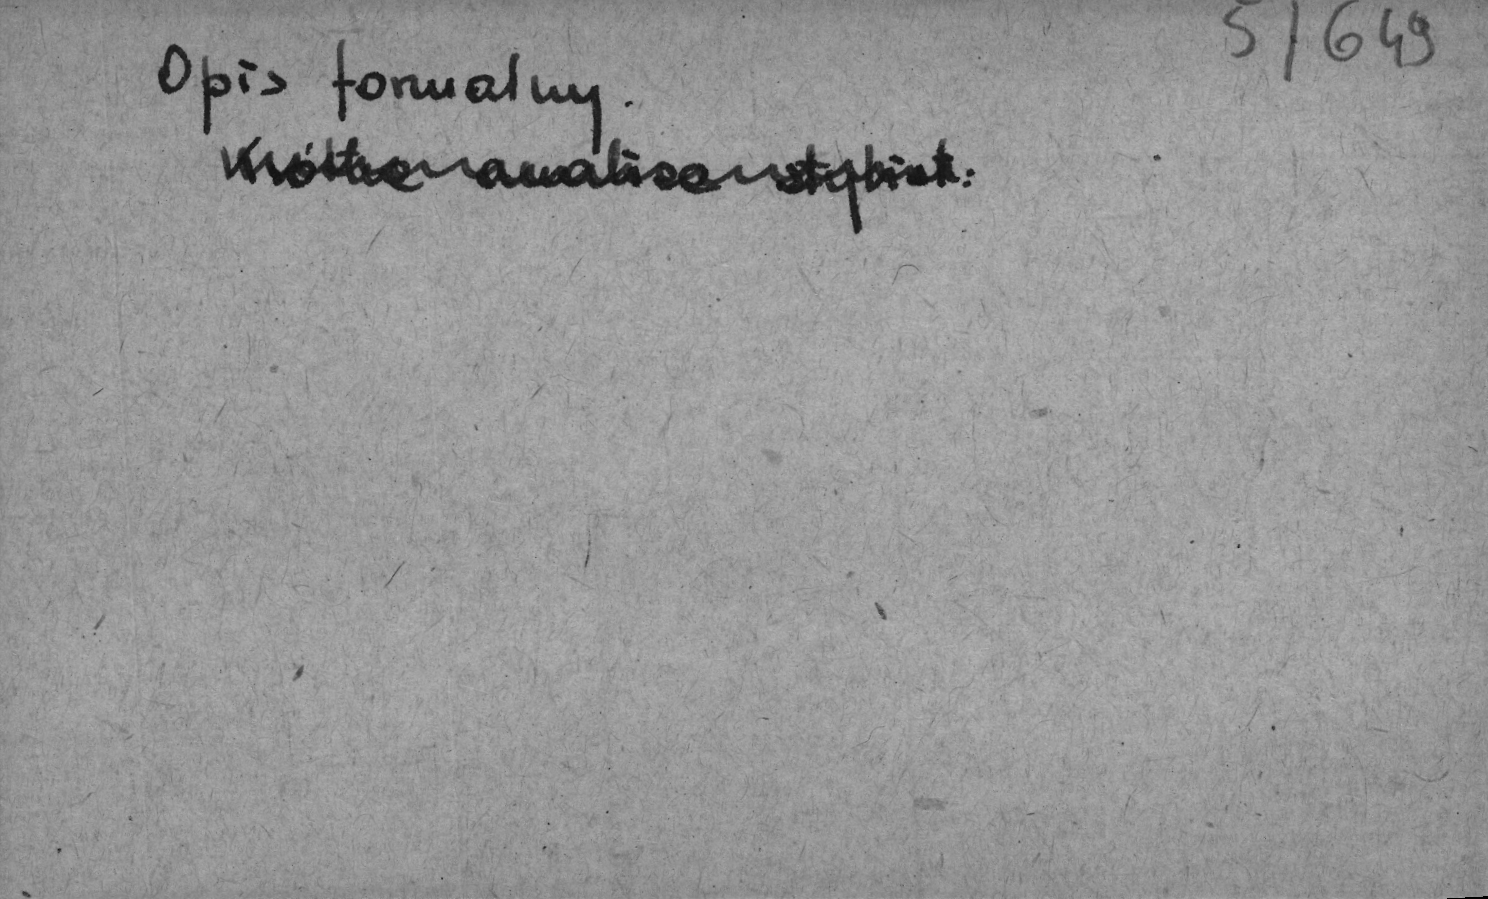 5/649
Opis formalny.
Krótka analiza